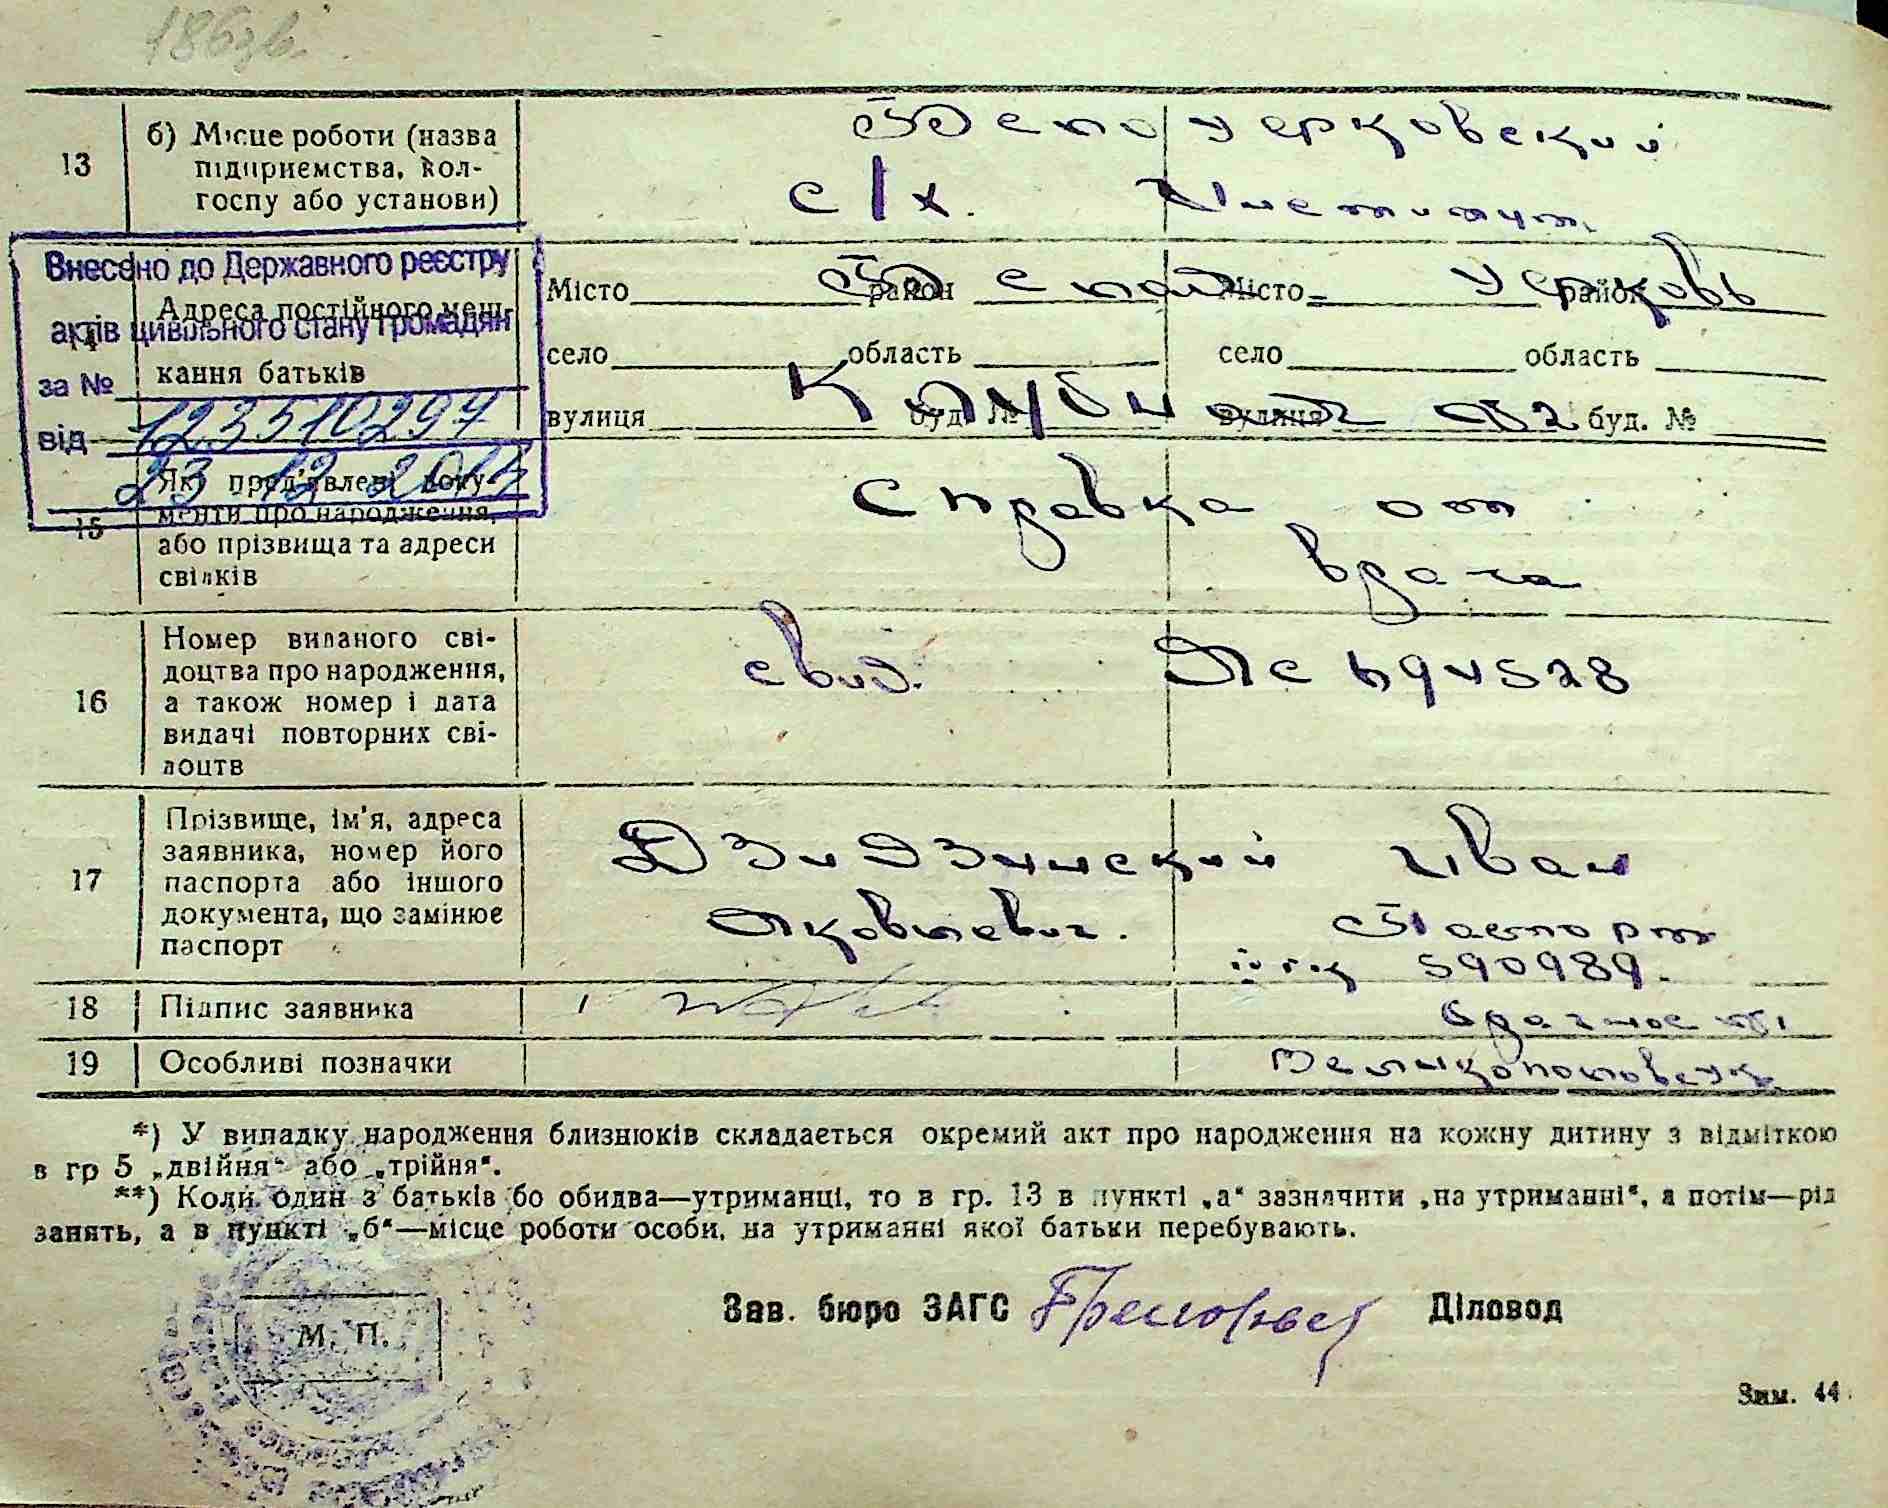 186 зв.
13
б) Місце роботи (назва
підприємства, кол-
госпу або установи)
Белоцерковский
с/х. Институт
Внесено до Державного реєстру
актів цивільного стану громадян
за № 123510297
від 23 12 2014
14
Адреса постійного меш-
кання батьків
Місто район Місто район
Белая Церковь
село область село область
вулиця буд. № вулиця буд. №
Які пред'явлені доку-
15
менти про народження,
або прізвища та адреси
свідків
Справка от
врача
16
Номер виданого сві-
доцтва про народження,
а також номер і дата
видачі повторних сві-
доцтв
свид.
17
Прізвище, ім'я, адреса
заявника, номер його
паспорта або іншого
документа, що замінює
паспорт
Дзидзинский Иван
Яковлевич. Паспорт
590989.
18
Підпис заявника
19
Особливі позначки
*) У випадку народження близнюків складається окремий акт про народження на кожну дитину з відміткою
в гр 5 „двійня“ або „трійня“.
**) Коли один з батьків бо обидва—утриманці, то в гр. 13 в пункті „а“ зазначити „на утриманні“, а потім—рід
занять, а в пункті „б“—місце роботи особи, на утриманні якої батьки перебувають.
М. П.
Зав. бюро ЗАГС
Діловод
Зам. 44